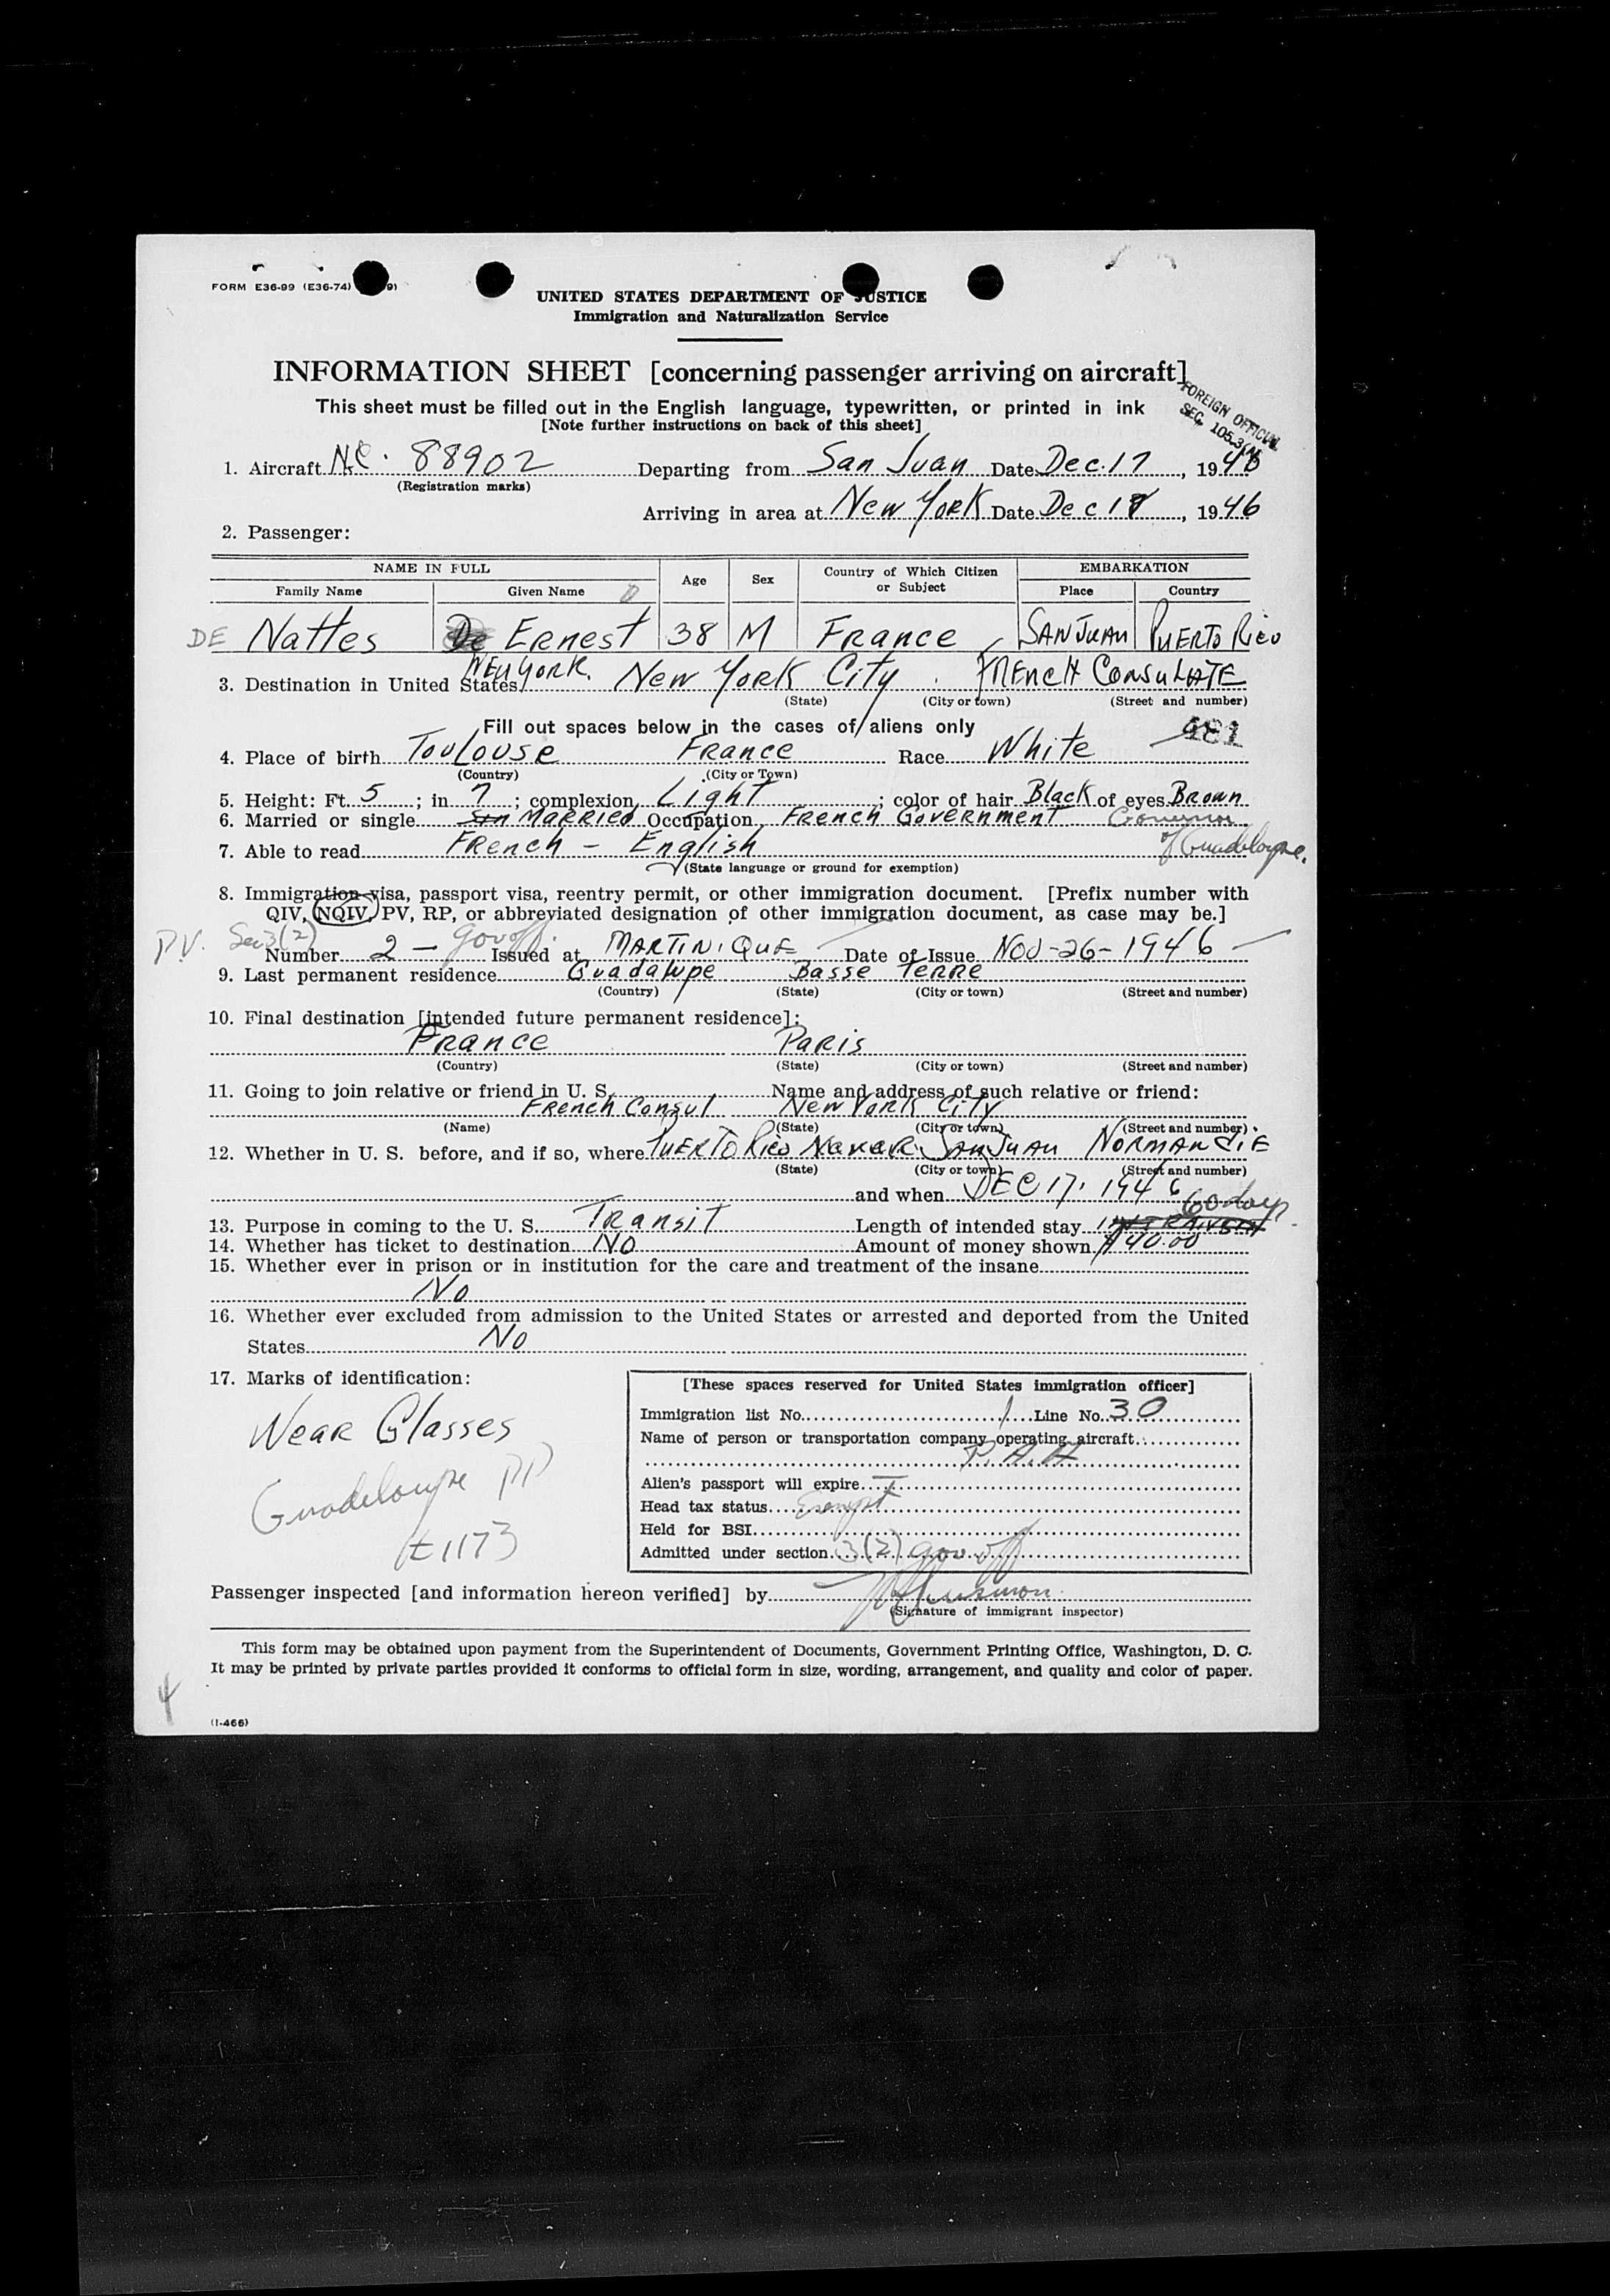 FORM E36-99 (E36-74) 9)
UNITED STATES DEPARTMENT OF JUSTICE
Immigration and Naturalization Service
INFORMATION SHEET [concerning passenger arriving on aircraft]
FOREIGN OFFICIAL
SEC. 105.3
This sheet must be filled out in the English language, typewritten, or printed in ink
[Note further instructions on back of this sheet]
1. Aircraft NC. 88902 Departing from San Juan Date Dec. 17, 1946
(Registration marks)
Arriving in area at New York Date Dec 18, 1946
2. Passenger:
NAME IN FULL Age Sex Country of Which Citizen or Subject EMBARKATION
Family Name Given Name Place Country
DE Nattes De Ernest 38 M France SAN JUAN PUERTO Rico
3. Destination in United States NEW YORK. New York City. FRENCH CONSULATE
(State) (City or town) (Street and number)
Fill out spaces below in the cases of aliens only
4. Place of birth Toulouse France Race White 481
(Country) (City or Town)
5. Height: Ft. 5; in 7; complexion Light; color of hair Black of eyes Brown
6. Married or single Sin MARRIED Occupation French Government Governor
of Guadeloupe.
7. Able to read French - English
(State language or ground for exemption)
8. Immigration visa, passport visa, reentry permit, or other immigration document. [Prefix number with
QIV, NQIV, PV, RP, or abbreviated designation of other immigration document, as case may be.]
PV. Sec 3(2)
Number 2 - gov off. Issued at MARTINIQUE Date of Issue NOV-26-1946
9. Last permanent residence Guadalupe Basse Terre
(Country) (State) (City or town) (Street and number)
10. Final destination [intended future permanent residece]:
France Paris
(Country) (State) (City or town) (Street and number)
11. Going to join relative or friend in U. S. Name and address of such relative or friend:
French Consul New York City
(Name) (State) (City or town) (Street and number)
12. Whether in U. S. before, and if so, where PUERTO Rico SAN JUAN NORMANDIE
(State) (City or town) (Street and number)
and when DEC 17, 1946
60 days
13. Purpose in coming to the U. S. Transit Length of intended stay
14. Whether has ticket to destination NO Amount of money shown $40.00
15. Whether ever in prison or in institution for the care and treatment of the insane
No
16. Whether ever excluded from admission to the United States or arrested and deported from the United
States No
17. Marks of identification:
Wear Glasses
Guadeloupe PP
1173
[These spaces reserved for United States immigration officer]
Immigration list No. 1 Line No. 30
Name of person or transportation company operating aircraft
P.A.A
Alien's passport will expire
Head tax status Exempt
Held for BSI
Admitted under section 3(2) gov off
Passenger inspected [and information hereon verified] by
(Signature of immigrant inspector)
This form may be obtained upon payment from the Superintendent of Documents, Government Printing Office, Washington, D. C.
It may be printed by private parties provided it conforms to official form in size, wording, arrangement, and quality and color of paper.
4
(I-466)